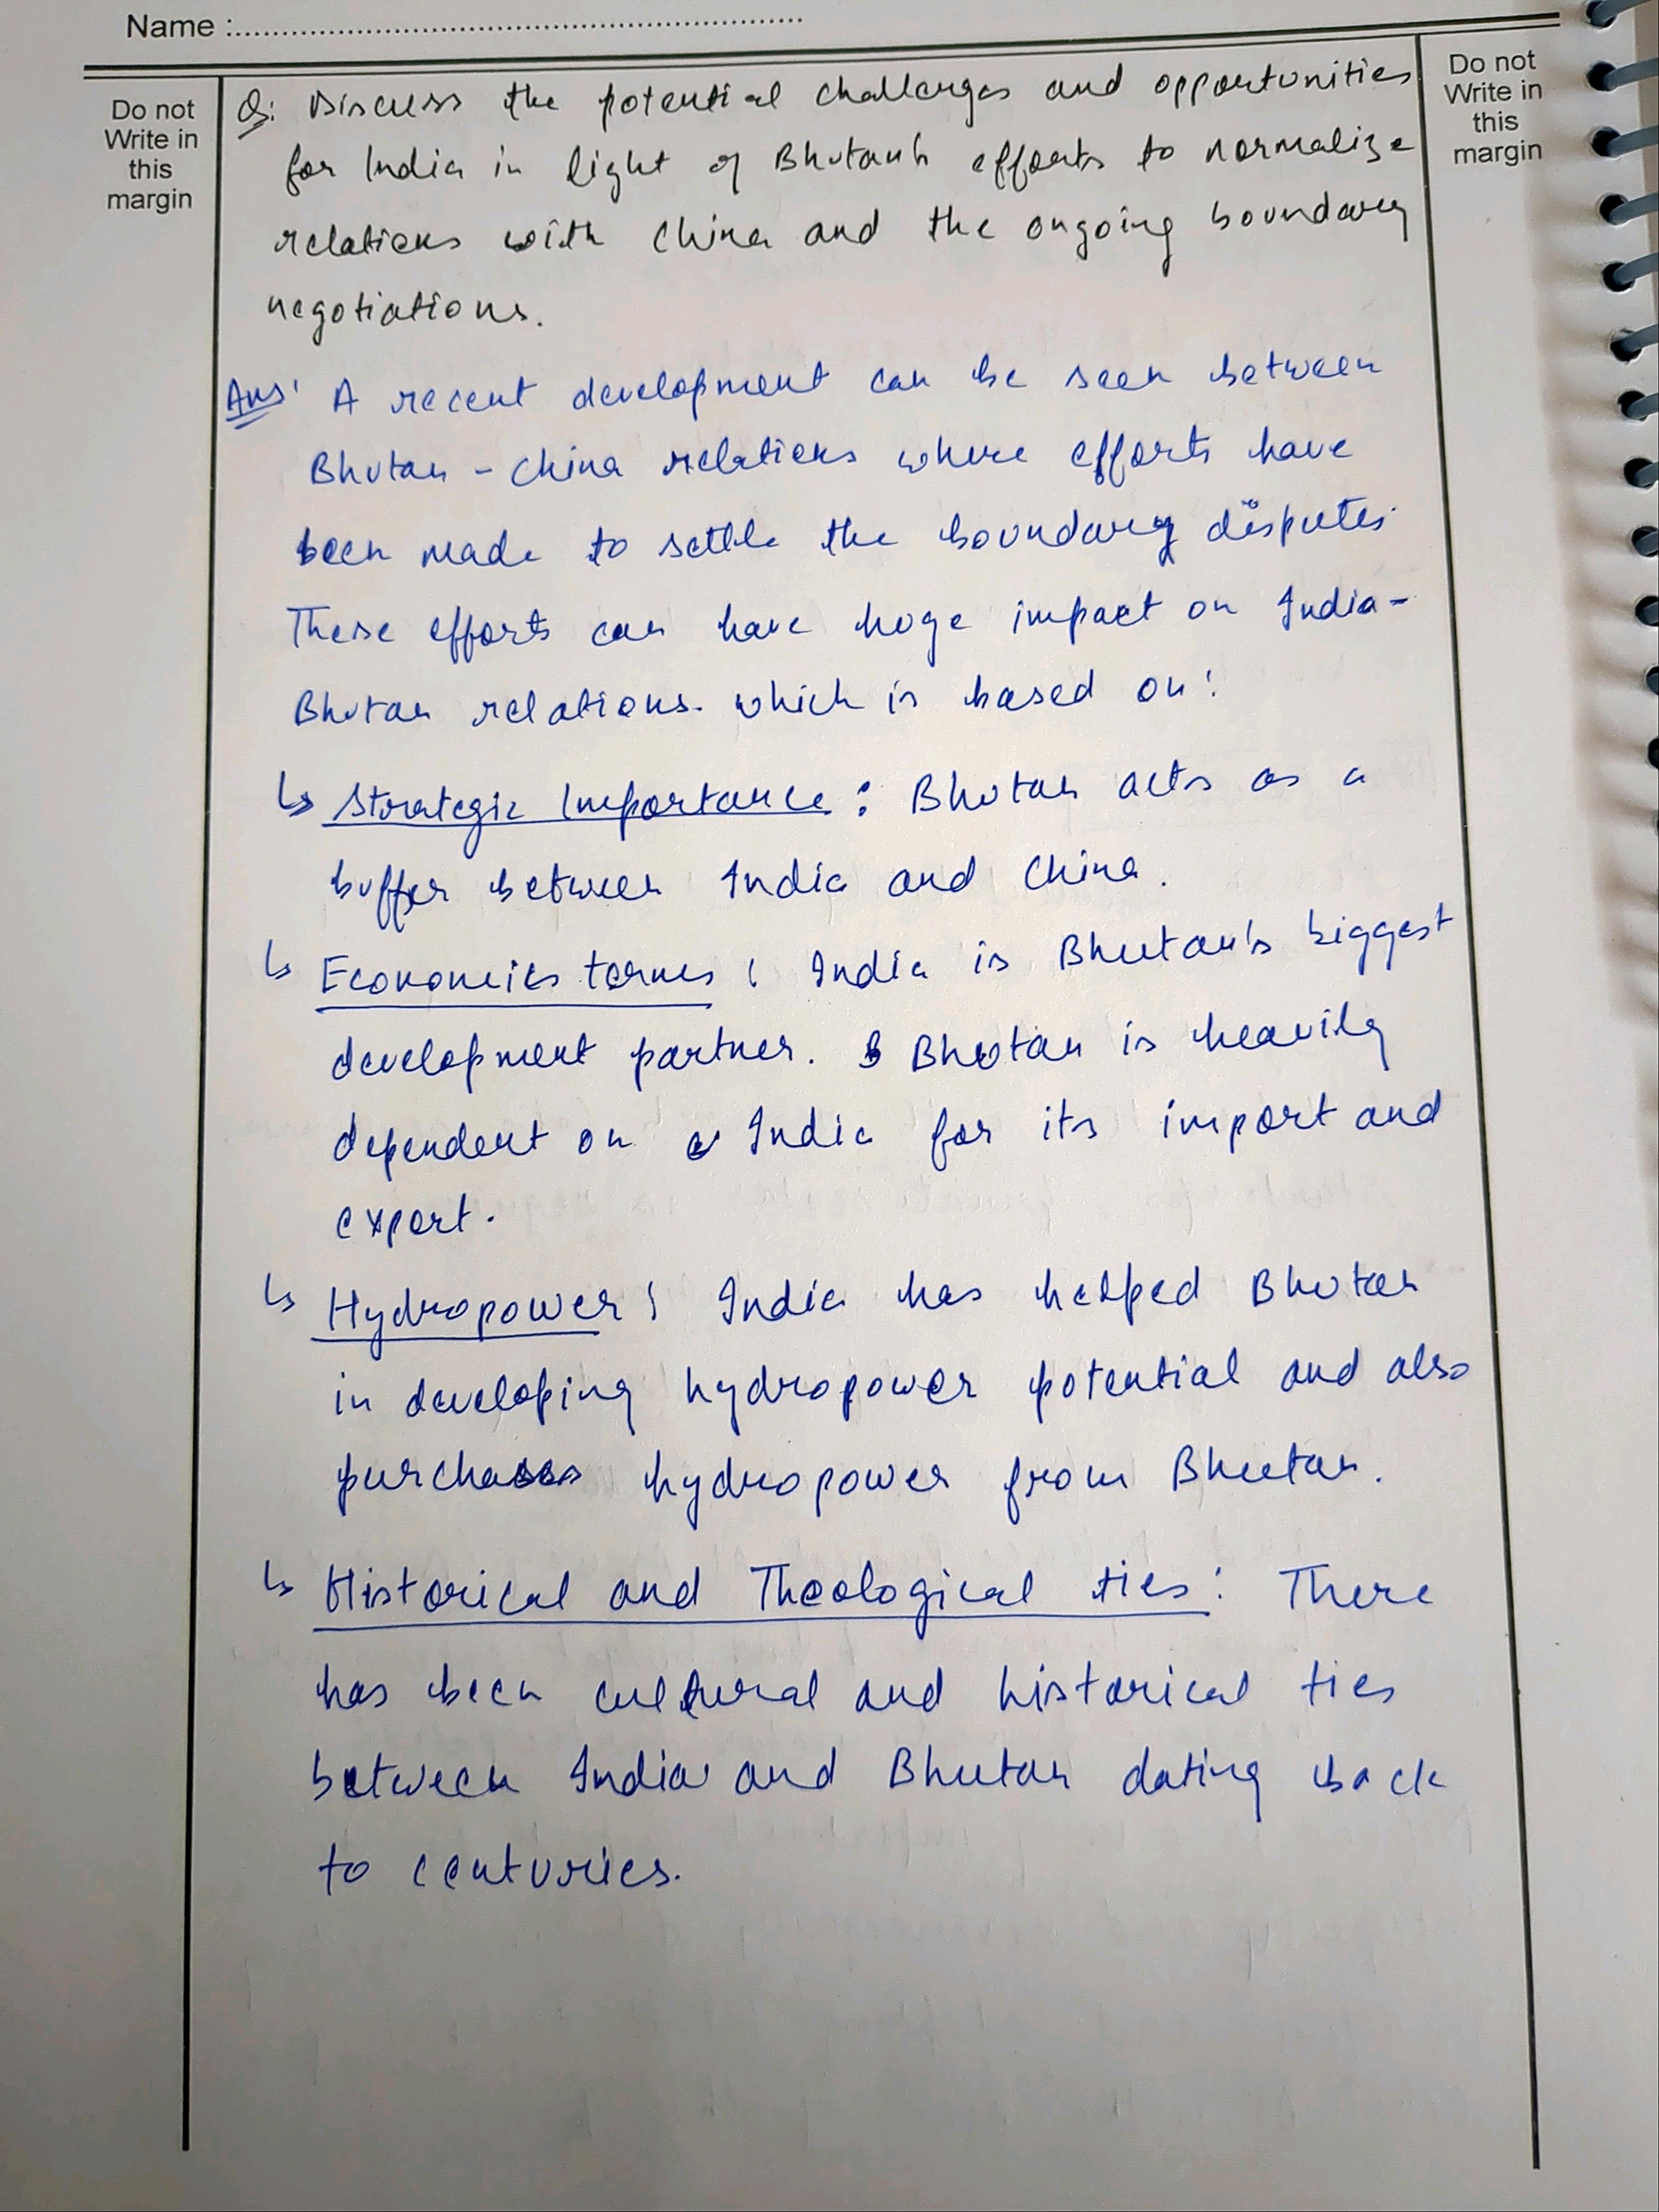 Name :
Do not
Write in
this
margin
Do not
Write in
this
margin
Q: Discuss the potential challenges and opportunities
for India in light of Bhutan's efforts to normalize
relations with China and the ongoing boundary
negotiations.
Ans: A recent development can be seen between
Bhutan - China relations where efforts have
been made to settle the boundary disputes.
These efforts can have huge impact on India-
Bhutan relations. which is based on:
↳ Strategic Importance: Bhutan acts as a
buffer between India and China.
↳ Economics terms: India is Bhutan's biggest
development partner. Bhutan is heavily
dependent on India for its import and
export.
↳ Hydropower: India has helped Bhutan
in developing hydropower potential and also
purchases hydropower from Bhutan.
↳ Historical and Theological ties: There
has been cultural and historical ties
between India and Bhutan dating back
to centuries.